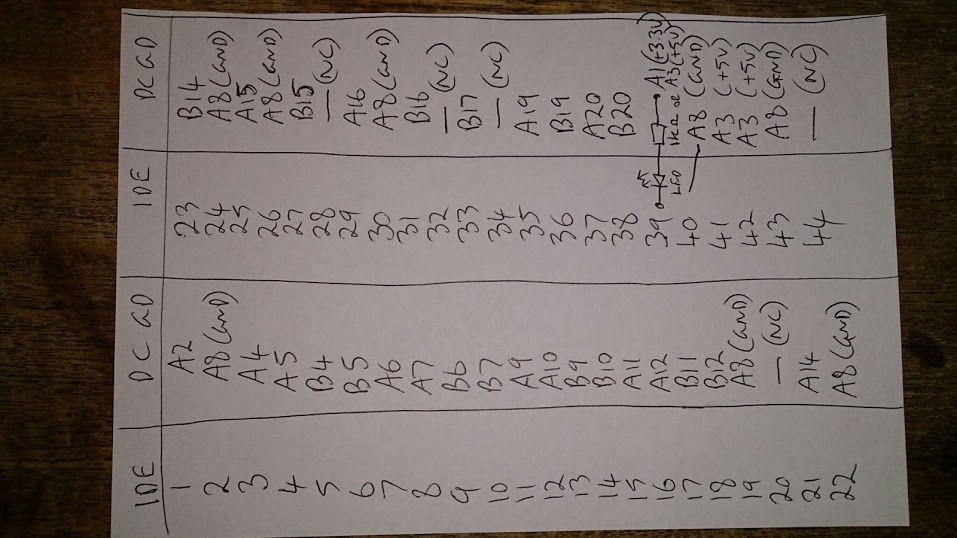 IDE DC GD IDE DC GD
1 A2 23 B14
2 A8(GND) 24 A8(GND)
3 A4 25 A15
4 A5 26 A8(GND)
5 B4 27 B15
6 B5 28 — (NC)
7 A6 29 A16
8 A7 30 A8(GND)
9 B6 31 B16
10 B7 32 — (NC)
11 A9 33 B17
12 A10 34 — (NC)
13 B9 35 A19
14 B10 36 B19
15 A11 37 A20
16 A12 38 B20
17 B11 39 LED 1kΩ A1(+3.3V) or A3(+5V)
18 B12 40 A8 (GND)
19 A8(GND) 41 A3 (+5V)
20 — (NC) 42 A3 (+5V)
21 A14 43 A8(GND)
22 A8(GND) 44 — (NC)